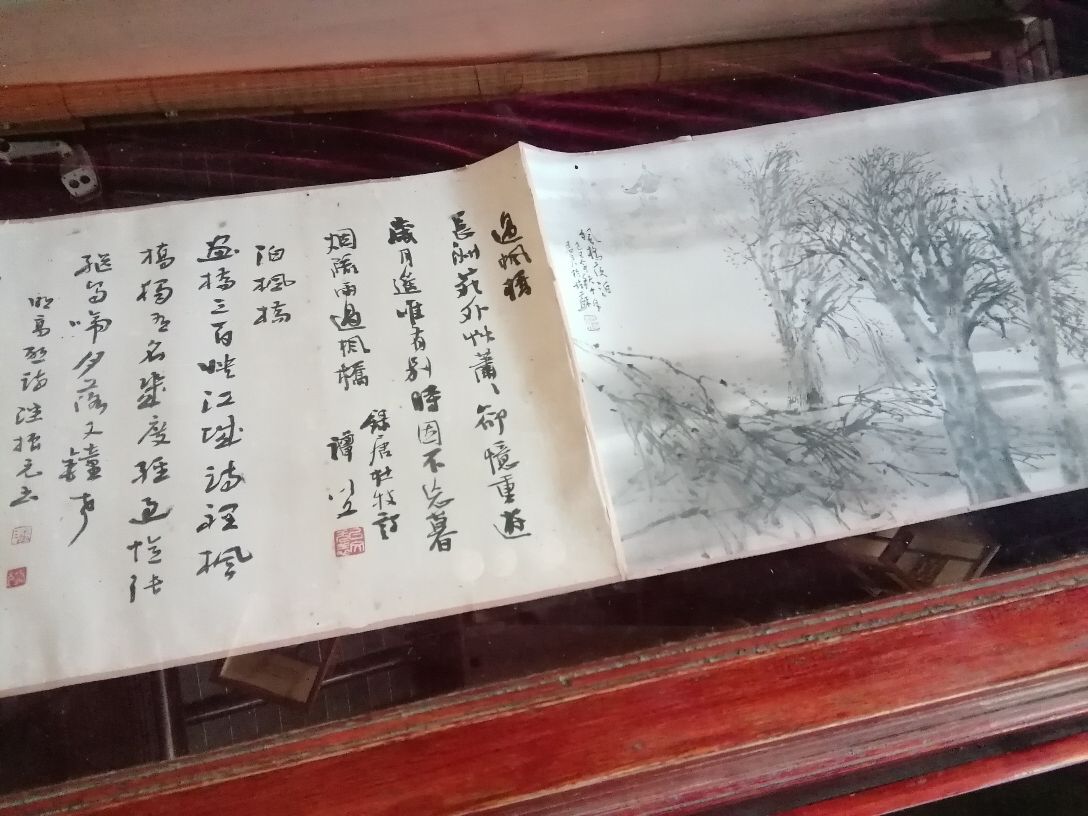 楓橋夜泊
過楓橋
長洲苑外艸蕭〻卻憶重遊
歲月遙唯有別時因不忘暮
烟疏雨過楓橋
錄唐杜牧詩
譚
泊楓橋
畫橋三百映江城詩裡楓
橋獨有名幾度經過憶張
繼烏啼夕落又鐘声
明高啟詩